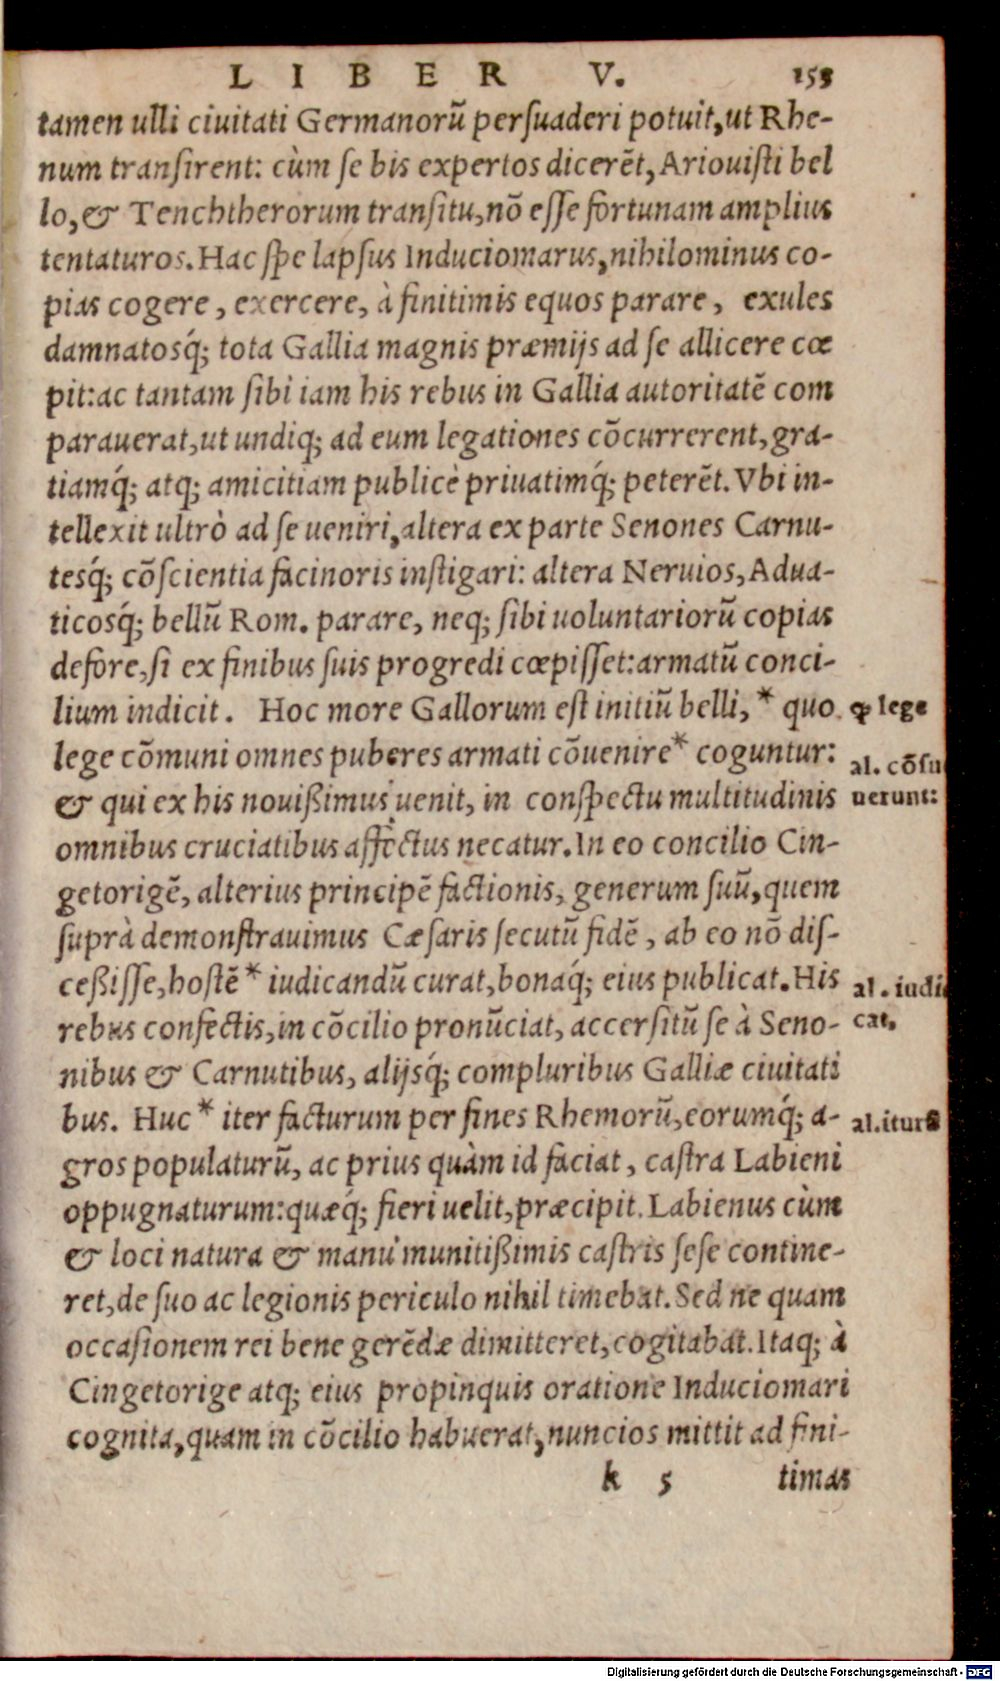 LIBER V. 153
tamen ulli ciuitati Germanorũ persuaderi potuit, ut Rhe-
num transirent: cùm se bis expertos dicerẽt, Ariouisti bel
lo, & Tenchtherorum transitu, nõ esse fortunam amplius
tentaturos. Hac spe lapsus Induciomarus, nihilominus co-
pias cogere, exercere, à finitimis equos parare, exules
damnatosq́; tota Gallia magnis præmijs ad se allicere cœ
pit: ac tantam sibi iam his rebus in Gallia autoritatẽ com
parauerat, ut undiq; ad eum legationes cõcurrerent, gra-
tiamq́; atq; amicitiam publicè priuatimq́; peterẽt. Vbi in-
tellexit ultrò ad se ueniri, altera ex parte Senones Carnu-
tesq́; cõscientia facinoris instigari: altera Neruios, Adua-
ticosq́; bellũ Rom. parare, neq; sibi uoluntariorũ copias
defore, si ex finibus suis progredi cœpisset: armatũ conci-
lium indicit. Hoc more Gallorum est initiũ belli, * quo
lege cõmuni omnes puberes armati cõuenire * coguntur:
& qui ex his nouißimus uenit, in conspectu multitudinis
omnibus cruciatibus affectus necatur. In eo concilio Cin-
getorigẽ, alterius principẽ factionis, generum suũ, quem
suprà demonstrauimus Cæsaris secutũ fidẽ, ab eo nõ dis-
ceßisse, hostẽ * iudicandũ curat, bonaq́; eius publicat. His
rebus confectis, in cõcilio pronũciat, accersitũ se à Seno-
nibus & Carnutibus, alijsq́; compluribus Galliæ ciuitati
bus. Huc * iter facturum per fines Rhemorũ, eorumq́; a-
gros populaturũ, ac prius quàm id faciat, castra Labieni
oppugnaturum: quæq́; fieri uelit, præcipit. Labienus cùm
& loci natura & manu munitißimis castris sese contine-
ret, de suo ac legionis periculo nihil timebat. Sed ne quam
occasionem rei bene gerẽdæ dimitteret, cogitabat. Itaq; à
Cingetorige atq; eius propinquis oratione Induciomari
cognita, quam in cõcilio habuerat, nuncios mittit ad fini-
k 5 timas
lege
al. cõsu
uerunt:
al. iudi
cat,
al.
Digitalisierung gefördert durch die Deutsche Forschungsgemeinschaft - DFG